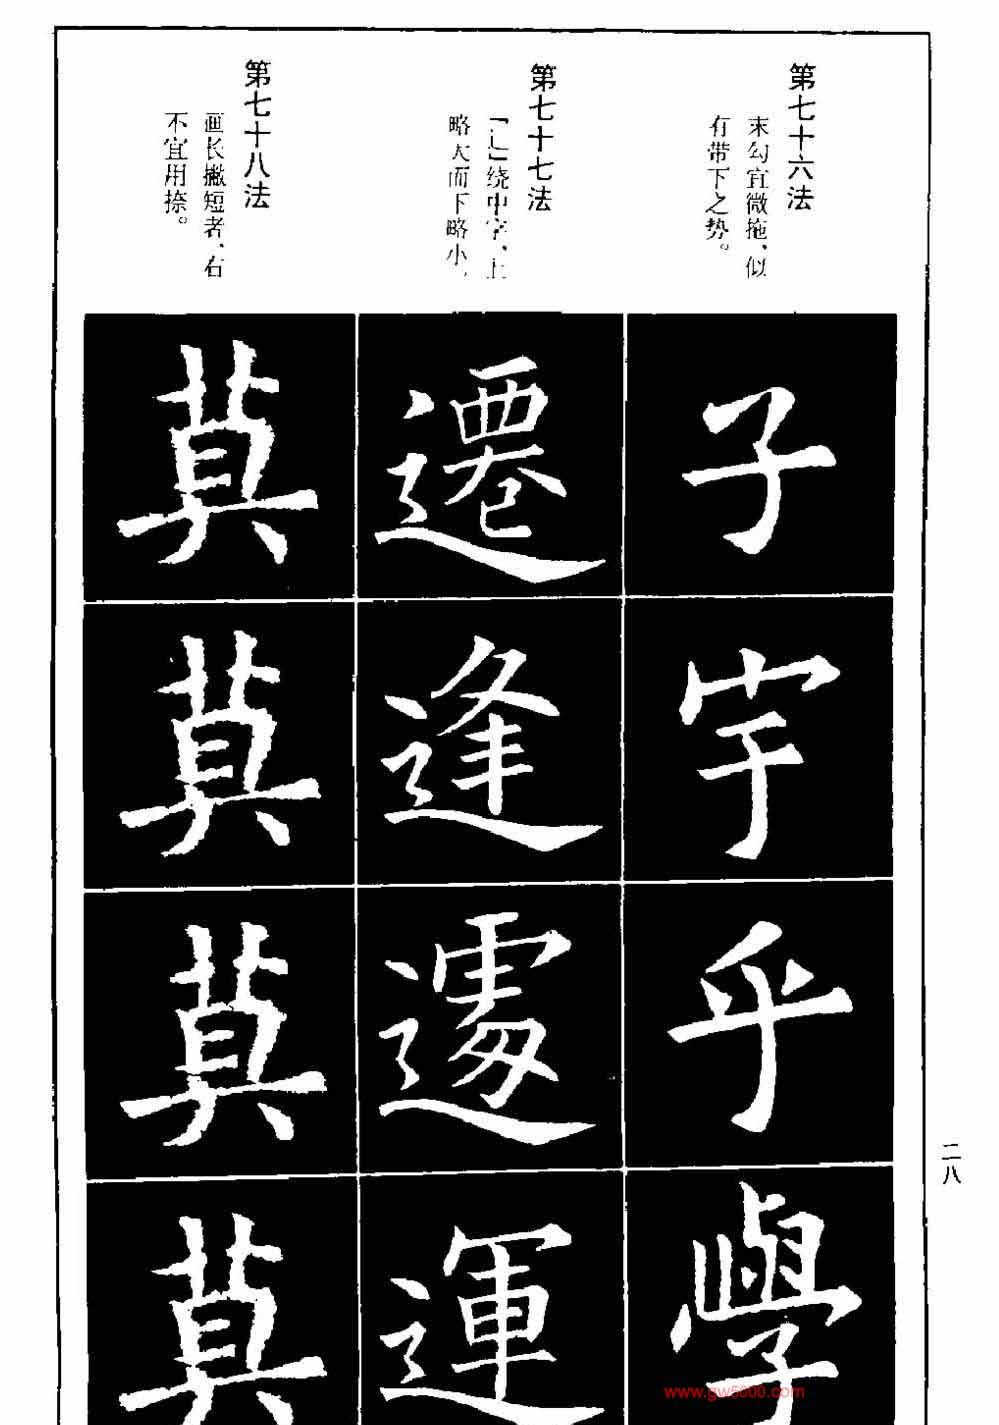 第七十六法
末勾宜微拖、似
有带下之势。
第七十七法
「辶」绕中字、上
略大而下略小。
第七十八法
画长撇短者、右
不宜用捺。
子
宇
乎
學
遷
逢
遽
運
莫
莫
莫
莫
二八
www.gw5000.com